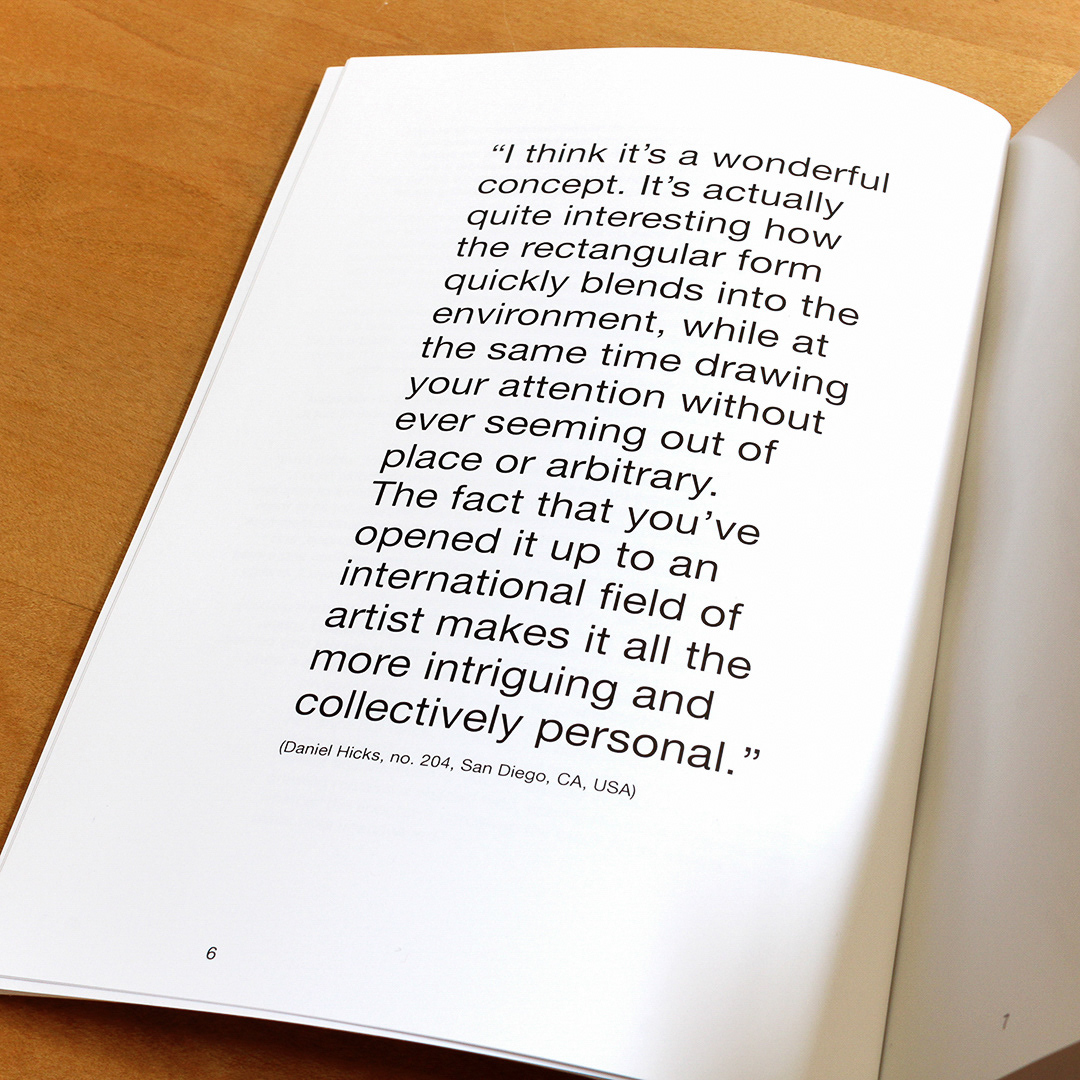 “I think it’s a wonderful
concept. It’s actually
quite interesting how
the rectangular form
quickly blends into the
environment, while at
the same time drawing
your attention without
ever seeming out of
place or arbitrary.
The fact that you’ve
opened it up to an
international field of
artist makes it all the
more intriguing and
collectively personal.”
(Daniel Hicks, no. 204, San Diego, CA, USA)
6
1